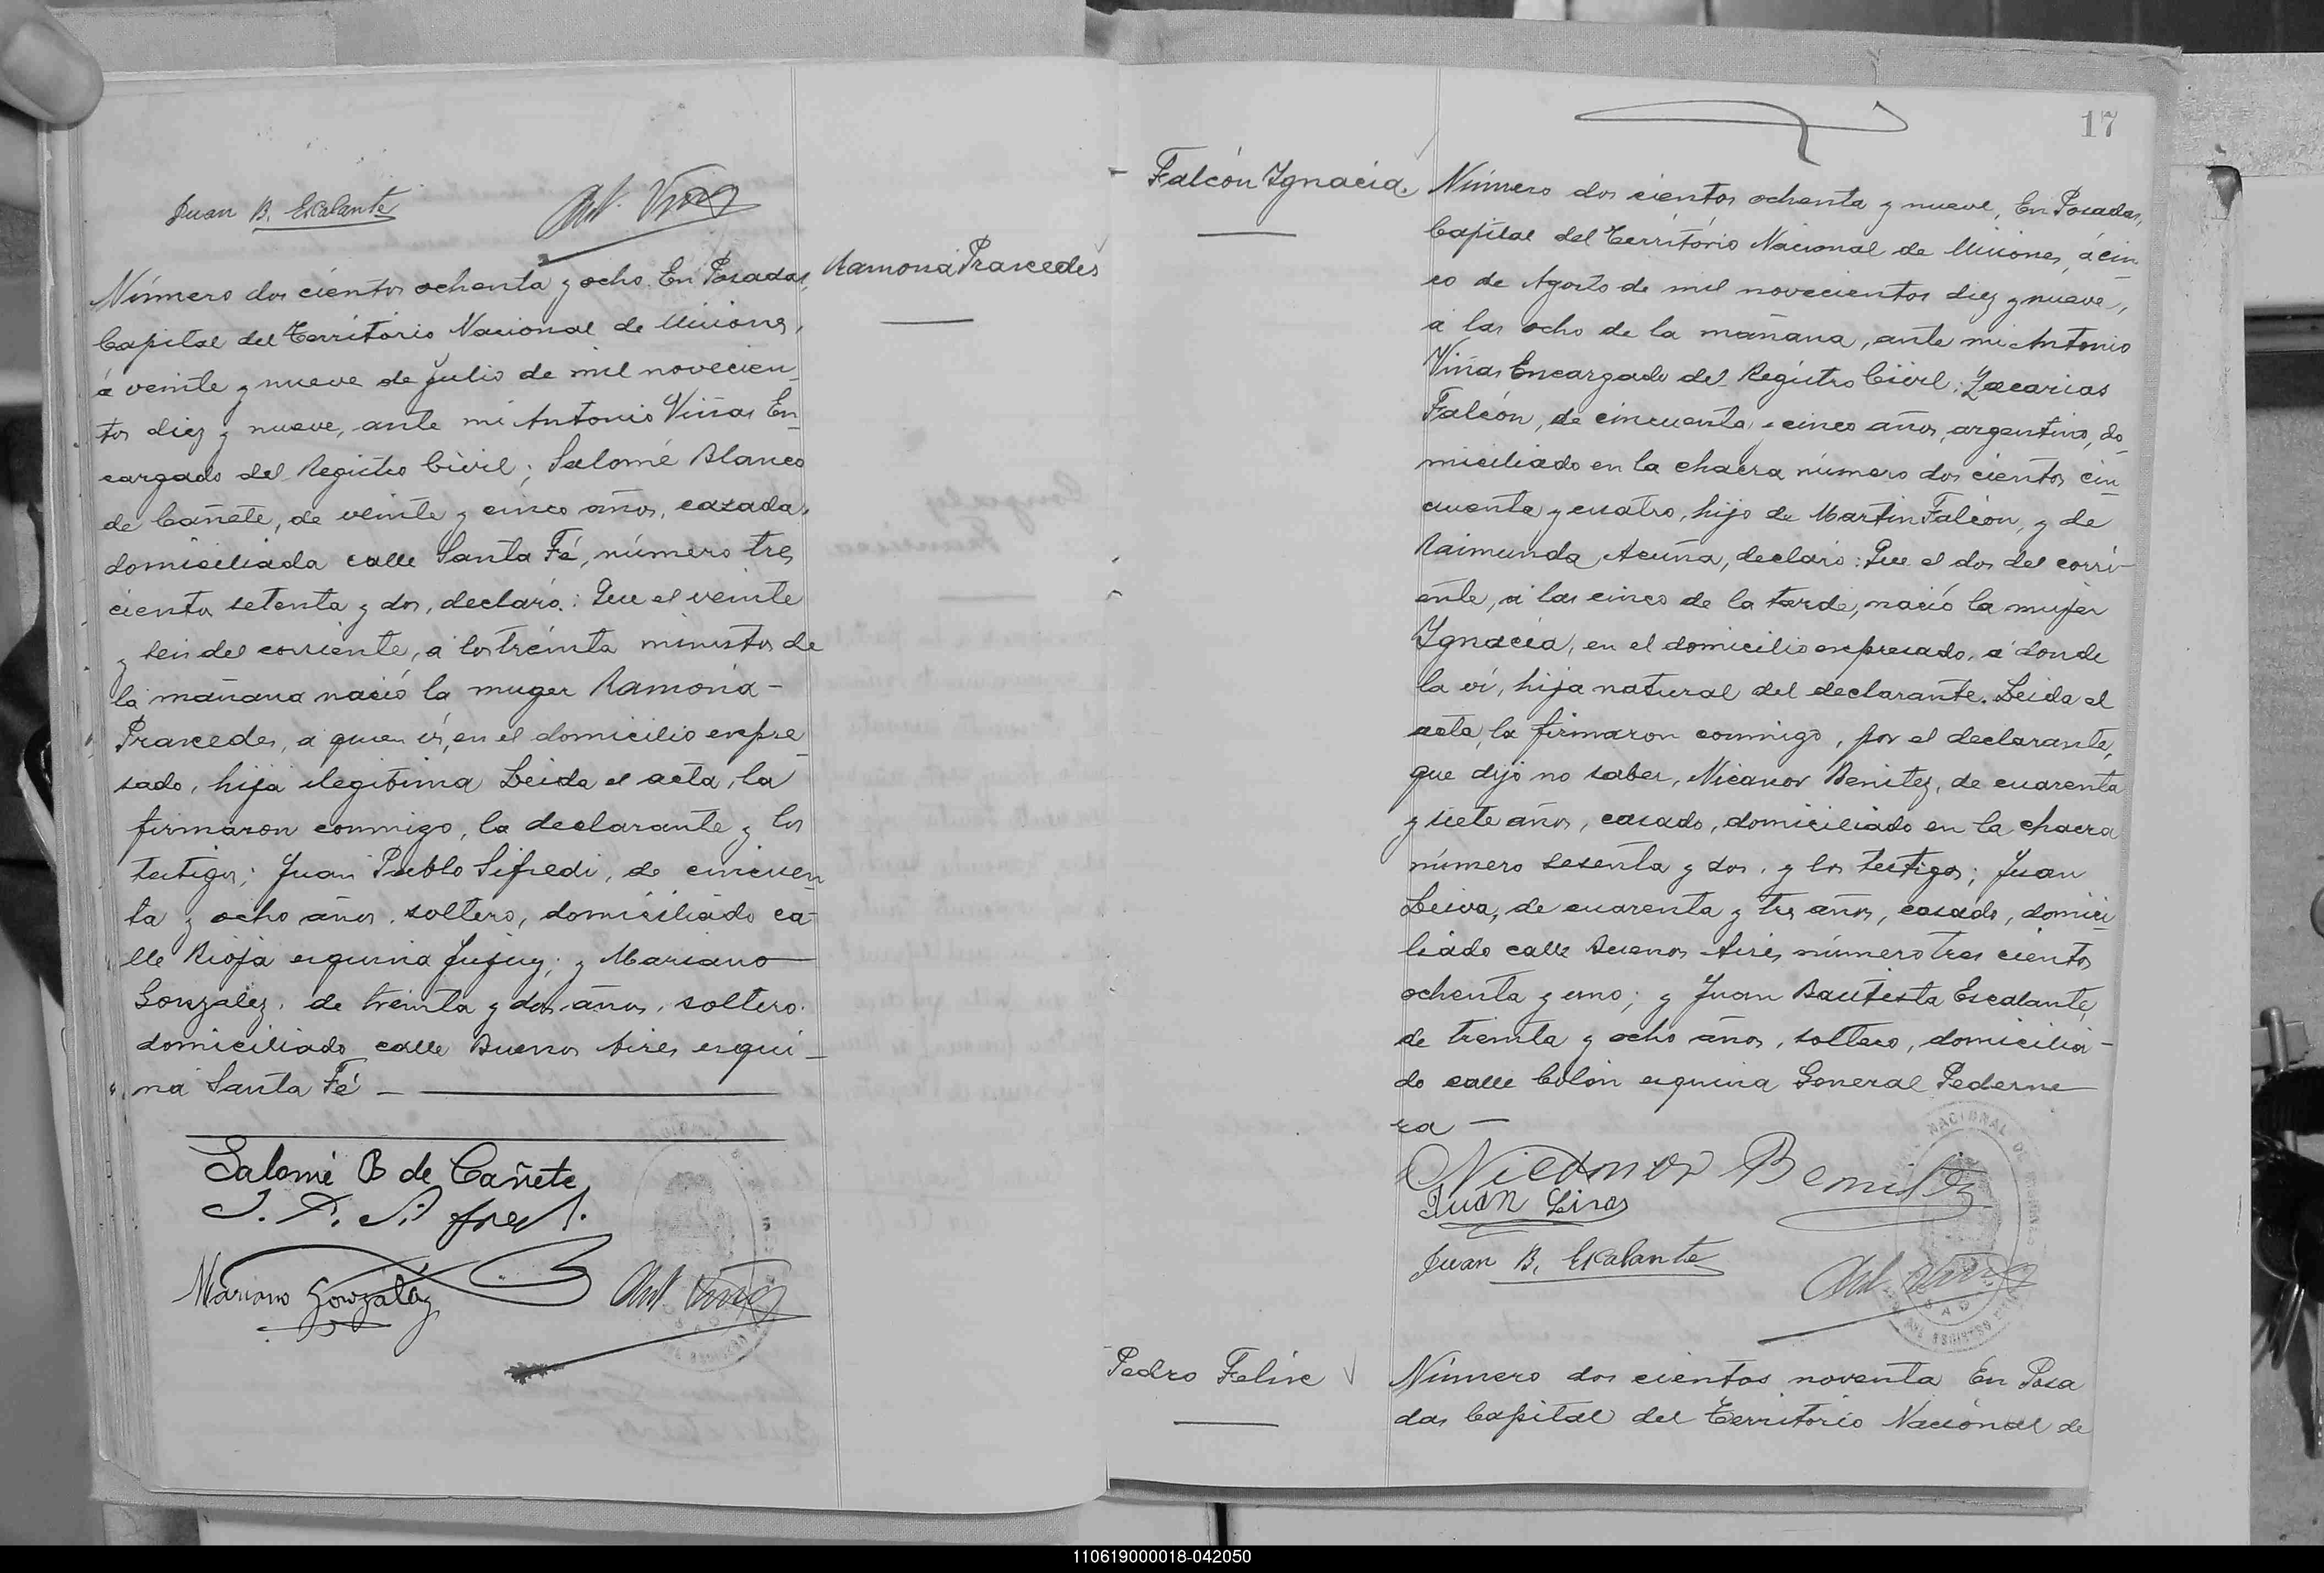 Juan B. Escalante
Ant. Viñas
Número dos cientos ochenta y ocho. En Posadas,
Capital del Território Nacional de Misiones,
á veinte y nueve de Julio de mil novecien_
tos diez y nueve, ante mi Antonio Viñas En_
cargado del Registro Civil; Salomé Blanco
de Cañete, de veinte y cinco años, casada,
domiciliada calle Santa Fé, número tres
cientos setenta y dos, declaró: Que el veinte
y seis del corriente, á los treinta minutos de
la mañana nació la muger Ramona-
Praxedes, a quien ví, en el domicilio expre_
sado, hija ilegitima Leida el acta, la
firmaron conmigo, la declarante y los
testigos; Juan Pablo Sifredi, de cincuen_
ta y ocho años, soltero, domiciliado ca-
lle Rioja esquina Jujuy; y Mariano
Gonzalez, de treinta y dos años, soltero.
domiciliado calle Buenos Aires esqui_
na Santa Fé
Salomé B de Cañete
Mariano Gonzalez
Ant Viñas
Ramona Praxedes
17
Falcón Ignacia.
Número dos cientos ochenta y nueve, En Posadas,
Capital del Território Nacional de Misiones, á cin_
co de Agosto de mil novecientos diez y nueve,
a las ocho de la mañana, ante mi Antonio
Viñas Encargado del Registro Civil; Zacarias
Falcón, de cincuenta y cinco años, argentino, do_
miciliado en la chacra número dos cientos cin_
cuenta y cuatro, hijo de Martin Falcón, y de
Raimunda Acuña, declaró: Que el dos del corri-
ente, a las cinco de la tarde, nació la mujer
Ignacia, en el domicilio expresado, a donde
la ví, hija natural del declarante. Leida el
acta, la firmaron conmigo, por el declarante,
que dijo no saber, Nicanor Benitez, de cuarenta
y siete años, casado, domiciliado en la chacra
número sesenta y dos, y los testigos; Juan
Leiva, de cuarenta y tres años, casado, domici_
liado calle Buenos Aires número tres cientos
ochenta y uno; y Juan Bautista Escalante,
de treinta y ocho años, soltero, domicilia-
do calle Colón esquina General Pederne
ra —
Nicanor Benitez
Juan
Juan B. Escalante
Ant. Viñas
Pedro Felix
Número dos cientos noventa En Posa
das Capital del Territorio Nacional de
110619000018-042050